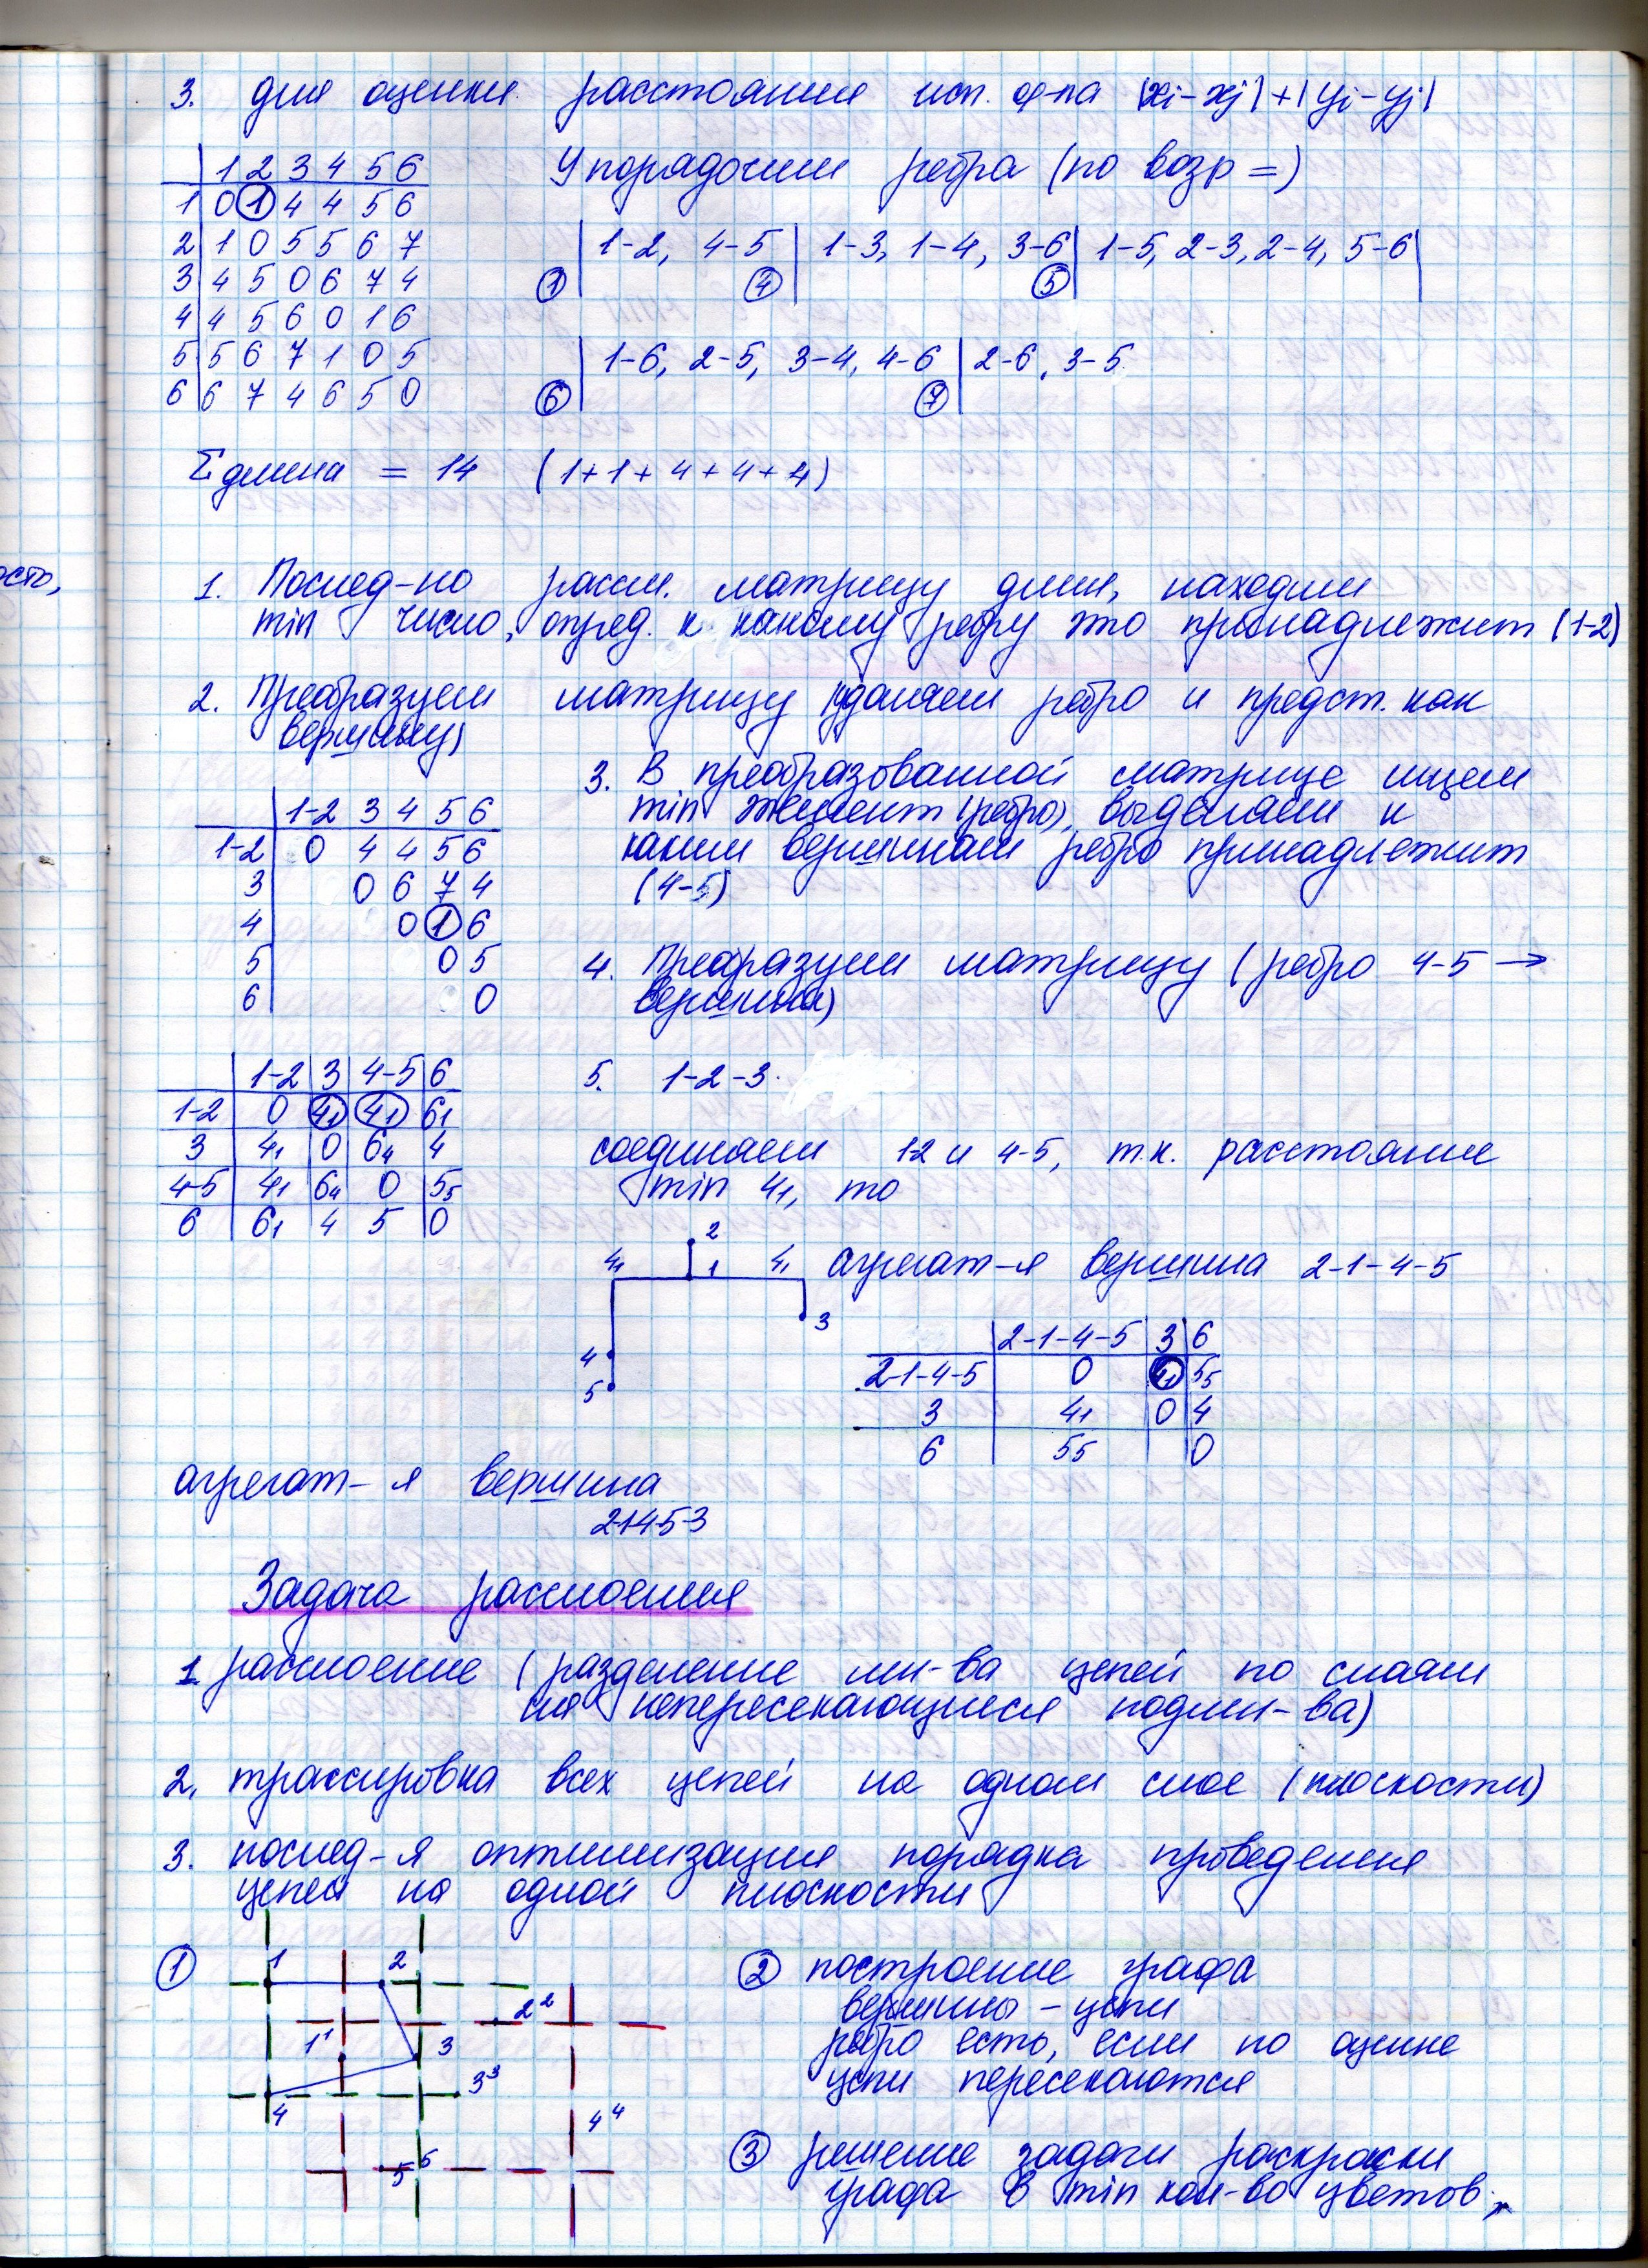 3. для оценки расстояния исп. ф-ла |xi-xj|+|yi-yj|
Упорядочим ребра (по возр =)
1 2 3 4 5 6
1 0 1 4 4 5 6
2 1 0 5 5 6 7
3 4 5 0 6 7 4
4 4 5 6 0 1 6
5 5 6 7 1 0 5
6 6 7 4 6 5 0
1-2, 4-5 | 1-3, 1-4, 3-6 | 1-5, 2-3, 2-4, 5-6
1 4 5
1-6, 2-5, 3-4, 4-6 | 2-6, 3-5
6 7
Σ длина = 14 (1+1+4+4+4)
ость,
1. Послед-но рассм. матрицу длин, находим
min число, опред. к какому ребру это принадлежит (1-2)
2. Преобразуем матрицу (удаляем ребро и предст. как
вершину)
3. В преобразованной матрице ищем
min элемент (ребро), выделяем к
каким вершинам ребро принадлежит
(4-5)
1-2 3 4 5 6
1-2 0 4 4 5 6
3 0 6 7 4
4 0 1 6
5 0 5
6 0
4. Преобразуем матрицу (ребро 4-5 →
вершина)
1-2 3 4-5 6
1-2 0 4₁ 4₁ 6₁
3 4₁ 0 6₄ 4
4-5 4₁ 6₄ 0 5₅
6 6₁ 4 5 0
5. 1-2-3.
соединяем 1-2 и 4-5, т.к. расстояние
min 4₁, то
2
4₁ 1 4₁
3
4
5
агрегат-я вершина 2-1-4-5
2-1-4-5 3 6
2-1-4-5 0 4₁ 5₅
3 4₁ 0 4
6 5₅ 0
агрегат-я вершина
2-1-4-5-3
Задача расслоения
1 расслоение (разделение мн-ва цепей по слоям
на непересекающиеся подмн-ва)
2. трассировка всех цепей на одном слое (плоскости)
3. послед-я оптимизация порядка проведения
цепей на одной плоскости
1
1 2
2²
1¹ 3
3³
4
4⁴
5⁵
2 построение графа
вершины – цепи
ребро есть, если по оценке
цепи пересекаются
3 решение задачи раскраски
графа в min кол-во цветов